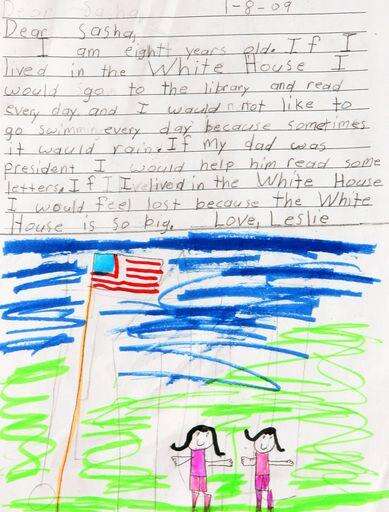 Dear Sasha 1-8-09
Dear Sasha,
I am eightt years old. If I
lived in the White House I
would go to the library and read
every day and I would not like to
go swimmin every day because sometimes
it would rain. If my dad was
president I would help him read some
letters. If I lived in the White House
I would feel lost because the White
House is so big. Love, Leslie